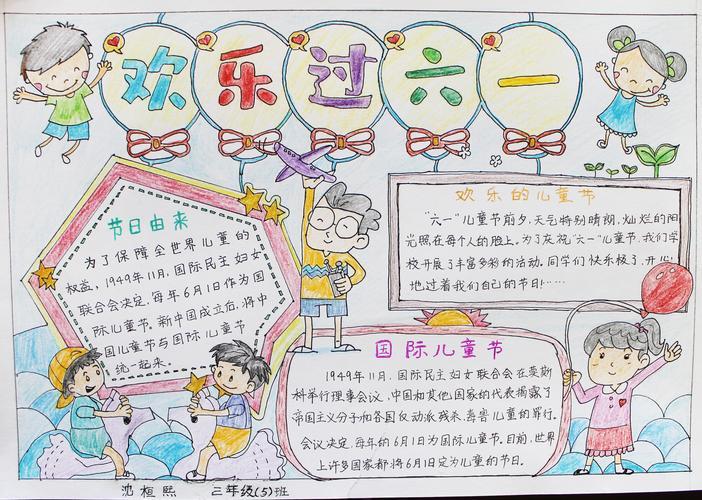 欢乐过六一
节日由来
为了保障全世界儿童的
权益，1949年11月，国际民主妇女
联合会决定，每年6月1日作为国
际儿童节。新中国成立后，将中
国儿童节与国际儿童节
统一起来。
欢乐的儿童节
“六一”儿童节前夕，天气特别晴朗，灿烂的阳
光照在每个人的脸上。为了庆祝“六一”儿童节，我们学
校开展了丰富多彩的活动。同学们快乐极了，开心
地过着我们自己的节日！……
国际儿童节
1949年11月，国际民主妇女联合会在莫斯
科举行理事会议，中国和其他国家的代表揭露了
帝国主义分子和各国反动派残杀、毒害儿童的罪行。
会议决定，每年的6月1日为国际儿童节。目前，世界
上许多国家都将6月1日定为儿童的节日。
沈桓熙 三年级(5)班